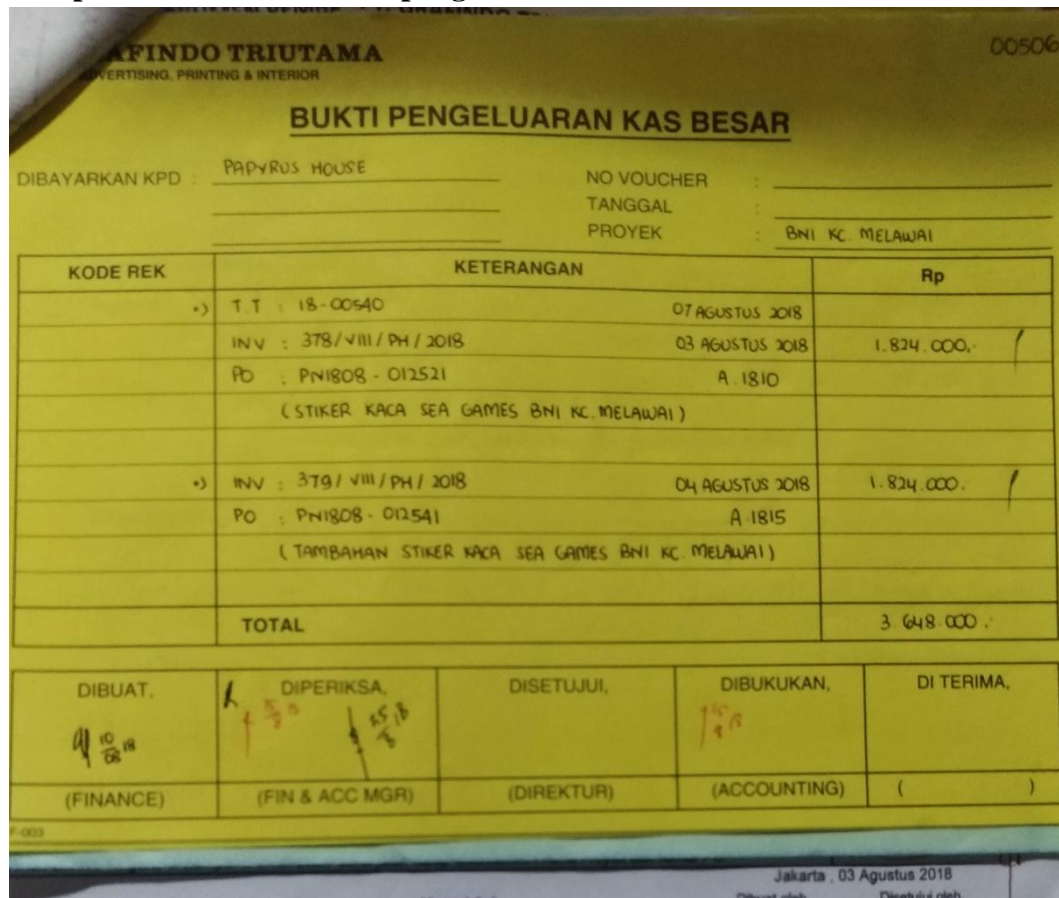 AFINDO TRIUTAMA
ADVERTISING, PRINTING & INTERIOR
00506
BUKTI PENGELUARAN KAS BESAR
DIBAYARKAN KPD : PAPYRUS HOUSE
NO VOUCHER :
TANGGAL :
PROYEK : BNI KC. MELAWAI
KODE REK KETERANGAN Rp
•) T.T : 18-00540 07 AGUSTUS 2018
INV : 378/VIII/PH/2018 03 AGUSTUS 2018 1.824.000,-
PO : PN1808-012521 A.1810
(STIKER KACA SEA GAMES BNI KC. MELAWAI)
•) INV : 379/VIII/PH/2018 04 AGUSTUS 2018 1.824.000.
PO : PN1808-012541 A.1815
(TAMBAHAN STIKER KACA SEA GAMES BNI KC. MELAWAI)
TOTAL 3.648.000.-
DIBUAT, DIPERIKSA, DISETUJUI, DIBUKUKAN, DI TERIMA,
10/08 18 25/8 18
(FINANCE) (FIN & ACC MGR) (DIREKTUR) (ACCOUNTING) ( )
F-003
Jakarta , 03 Agustus 2018
Dibuat oleh Disetujui oleh